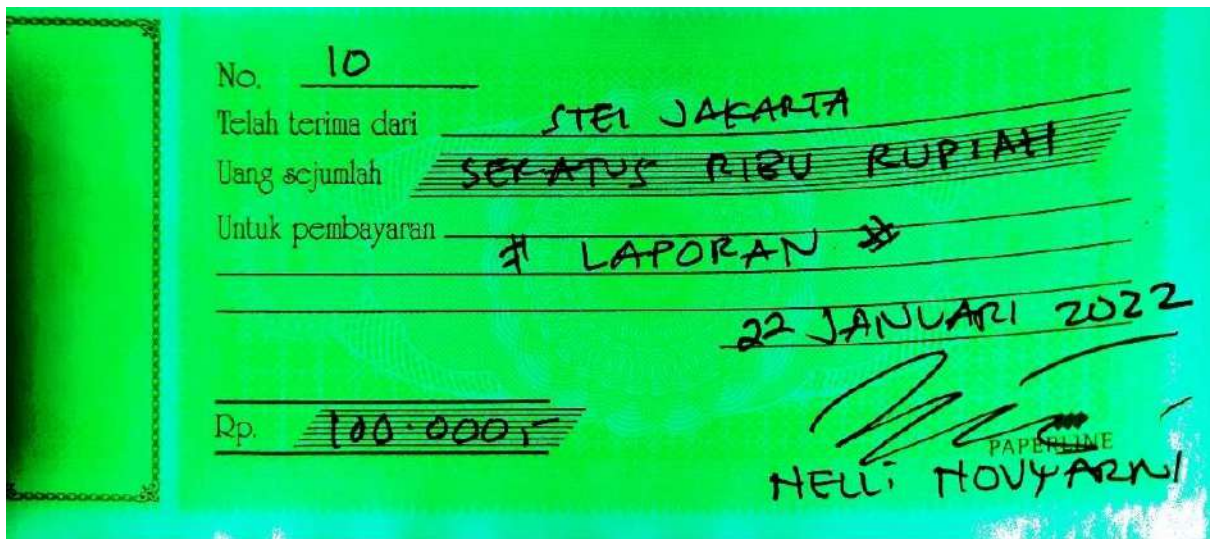 No. 10
Telah terima dari STEI JAKARTA
Uang sejumlah SERATUS RIBU RUPIAH
Untuk pembayaran
# LAPORAN #
22 JANUARI 2022
Rp. 100.000,-
PAPERLINE
NELLI NOVYARNI